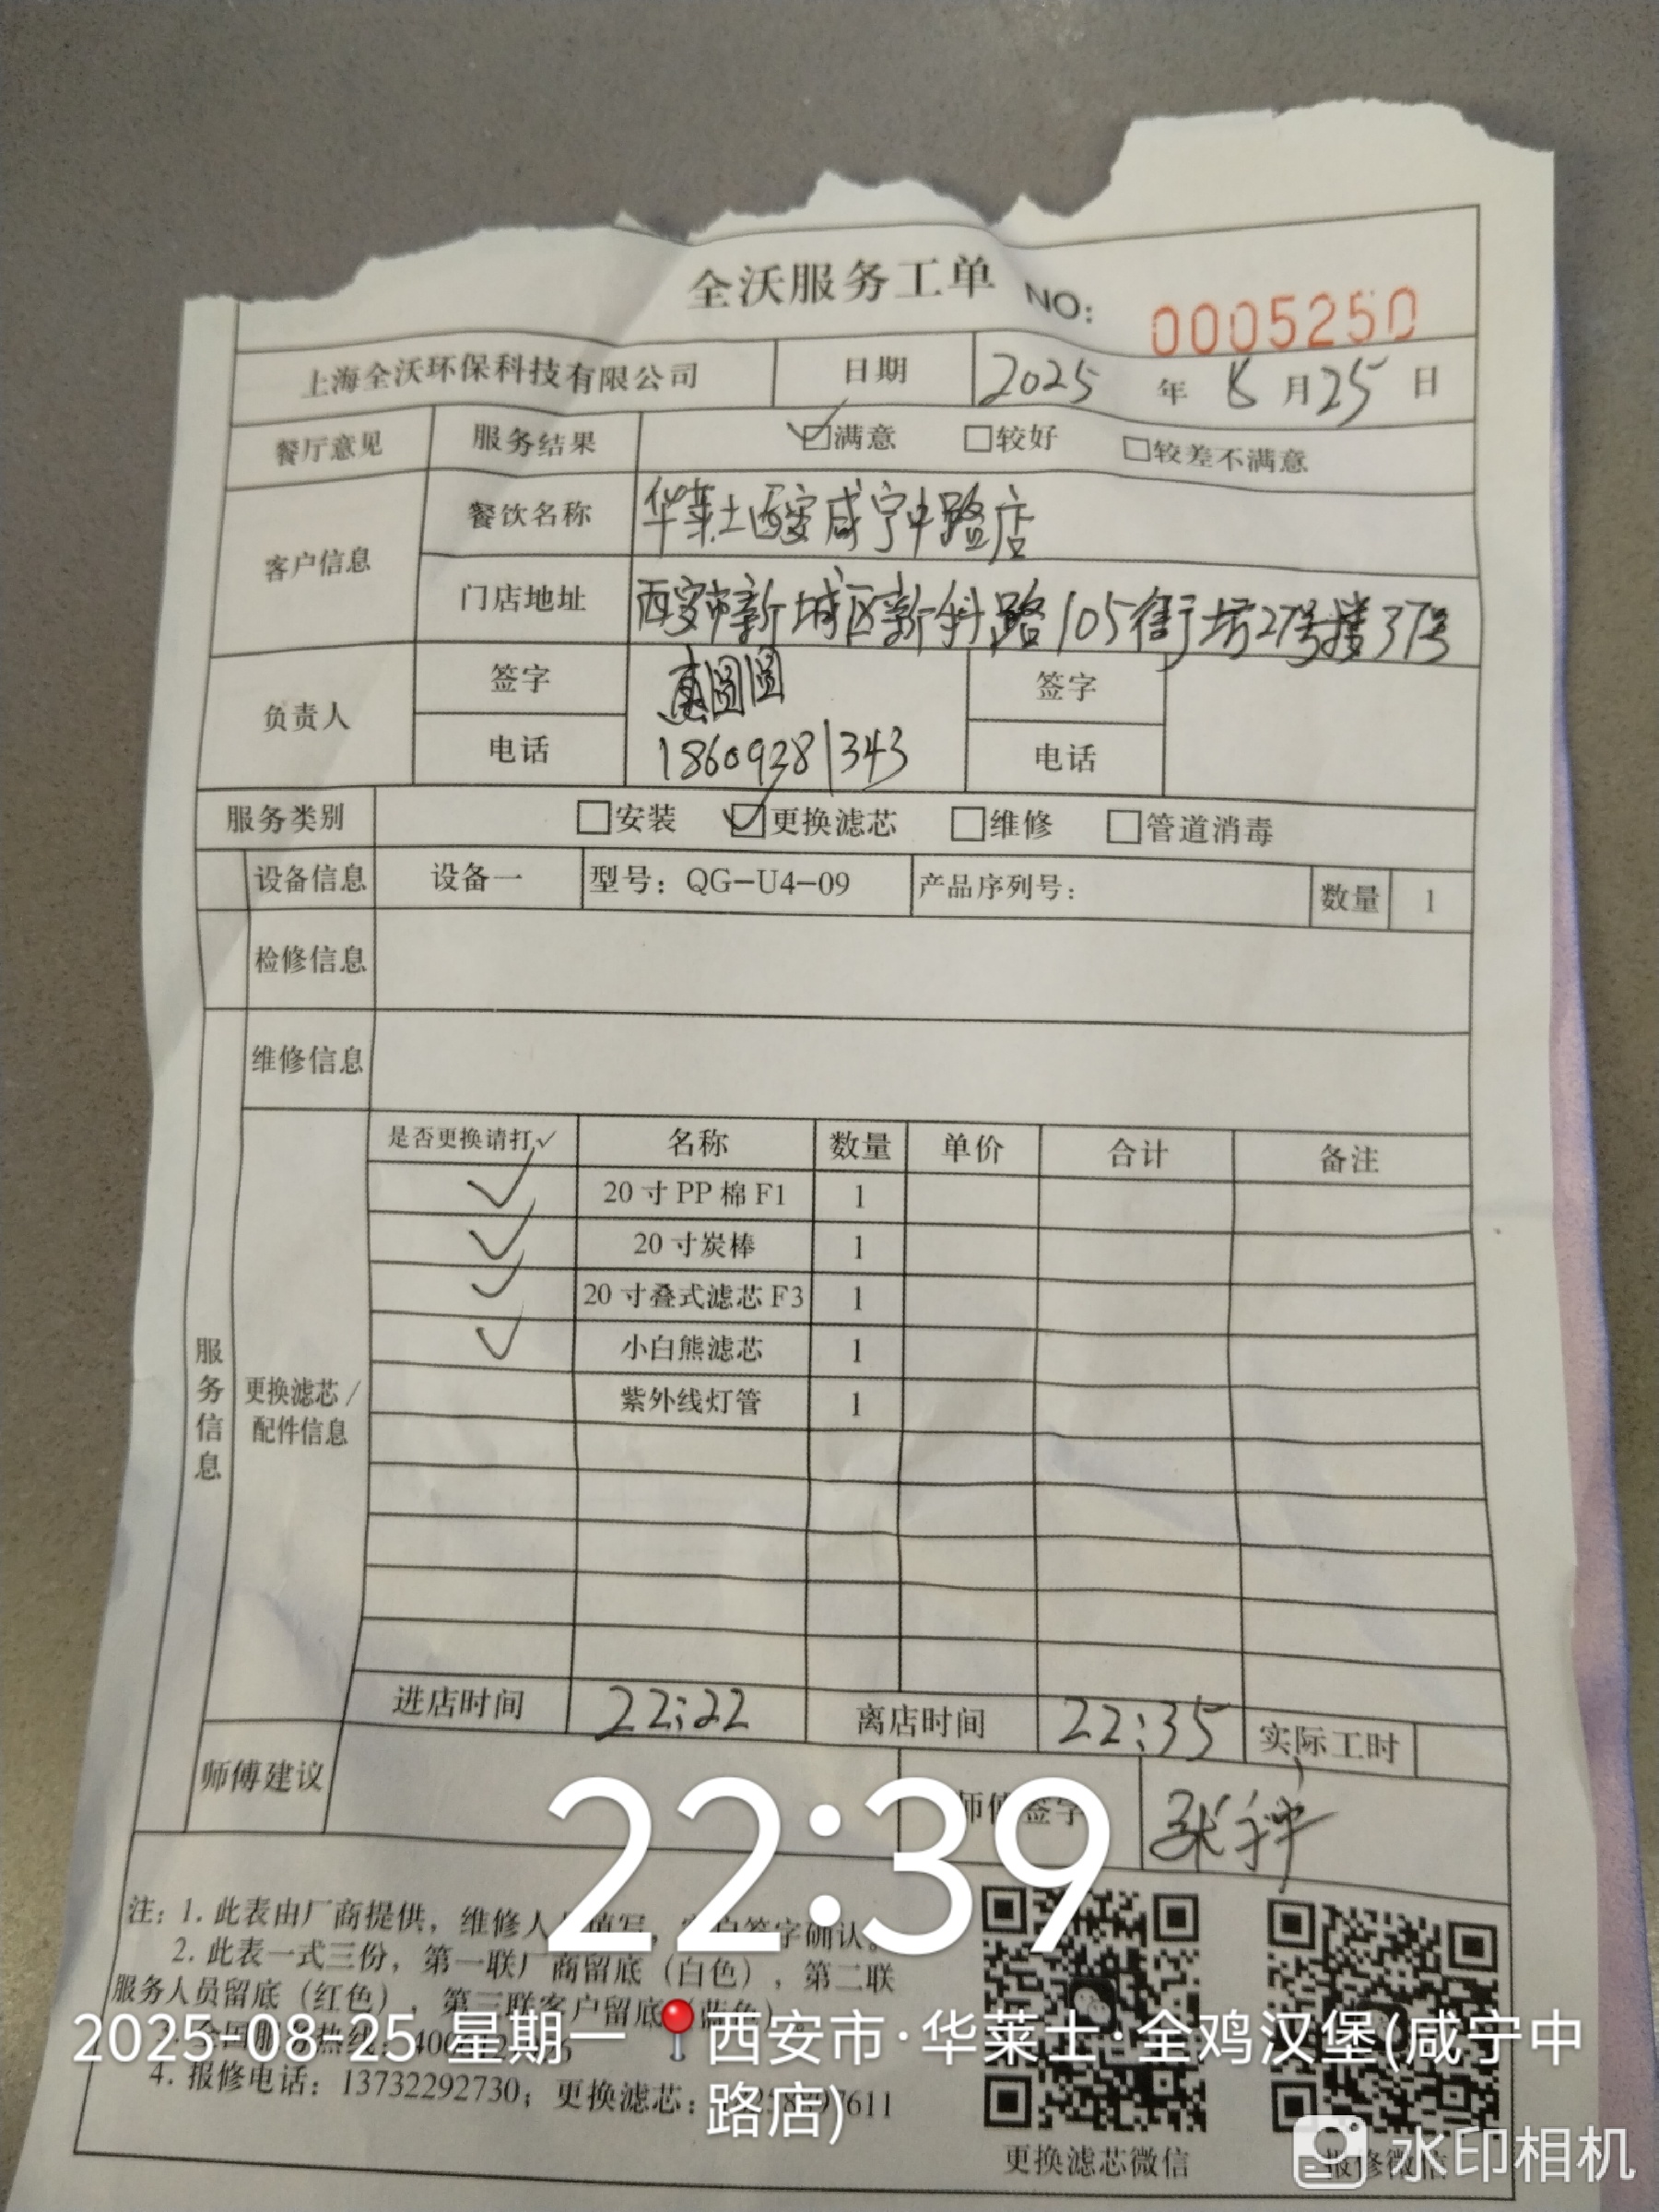 全沃服务工单 NO: 0005250
上海全沃环保科技有限公司 日期 2025 年 8 月 25 日
餐厅意见 服务结果 ☑满意 □较好 □较差不满意
客户信息 餐饮名称 华莱士西安咸宁中路店
门店地址 西安市新城区新科路105街坊27号楼37号
负责人 签字 圆圆 签字
电话 18609281343 电话
服务类别 □安装 ☑更换滤芯 □维修 □管道消毒
设备信息 设备一 型号：QG-U4-09 产品序列号： 数量 1
检修信息
维修信息
服务信息
更换滤芯/配件信息
是否更换请打✓ 名称 数量 单价 合计 备注
✓ 20寸PP棉F1 1
✓ 20寸炭棒 1
✓ 20寸叠式滤芯F3 1
✓ 小白熊滤芯 1
紫外线灯管 1
进店时间 22:22 离店时间 22:35 实际工时
师傅建议 师傅签字 张
22:39
注：1. 此表由厂商提供，维修人员填写，客户签字确认。
2. 此表一式三份，第一联厂商留底（白色），第二联
服务人员留底（红色），第三联客户留底（蓝色）。
全国服务热线：400
4. 报修电话：13732292730；更换滤芯： 7611
更换滤芯微信 报修微信
2025-08-25 星期一 西安市·华莱士·全鸡汉堡(咸宁中
路店)
水印相机